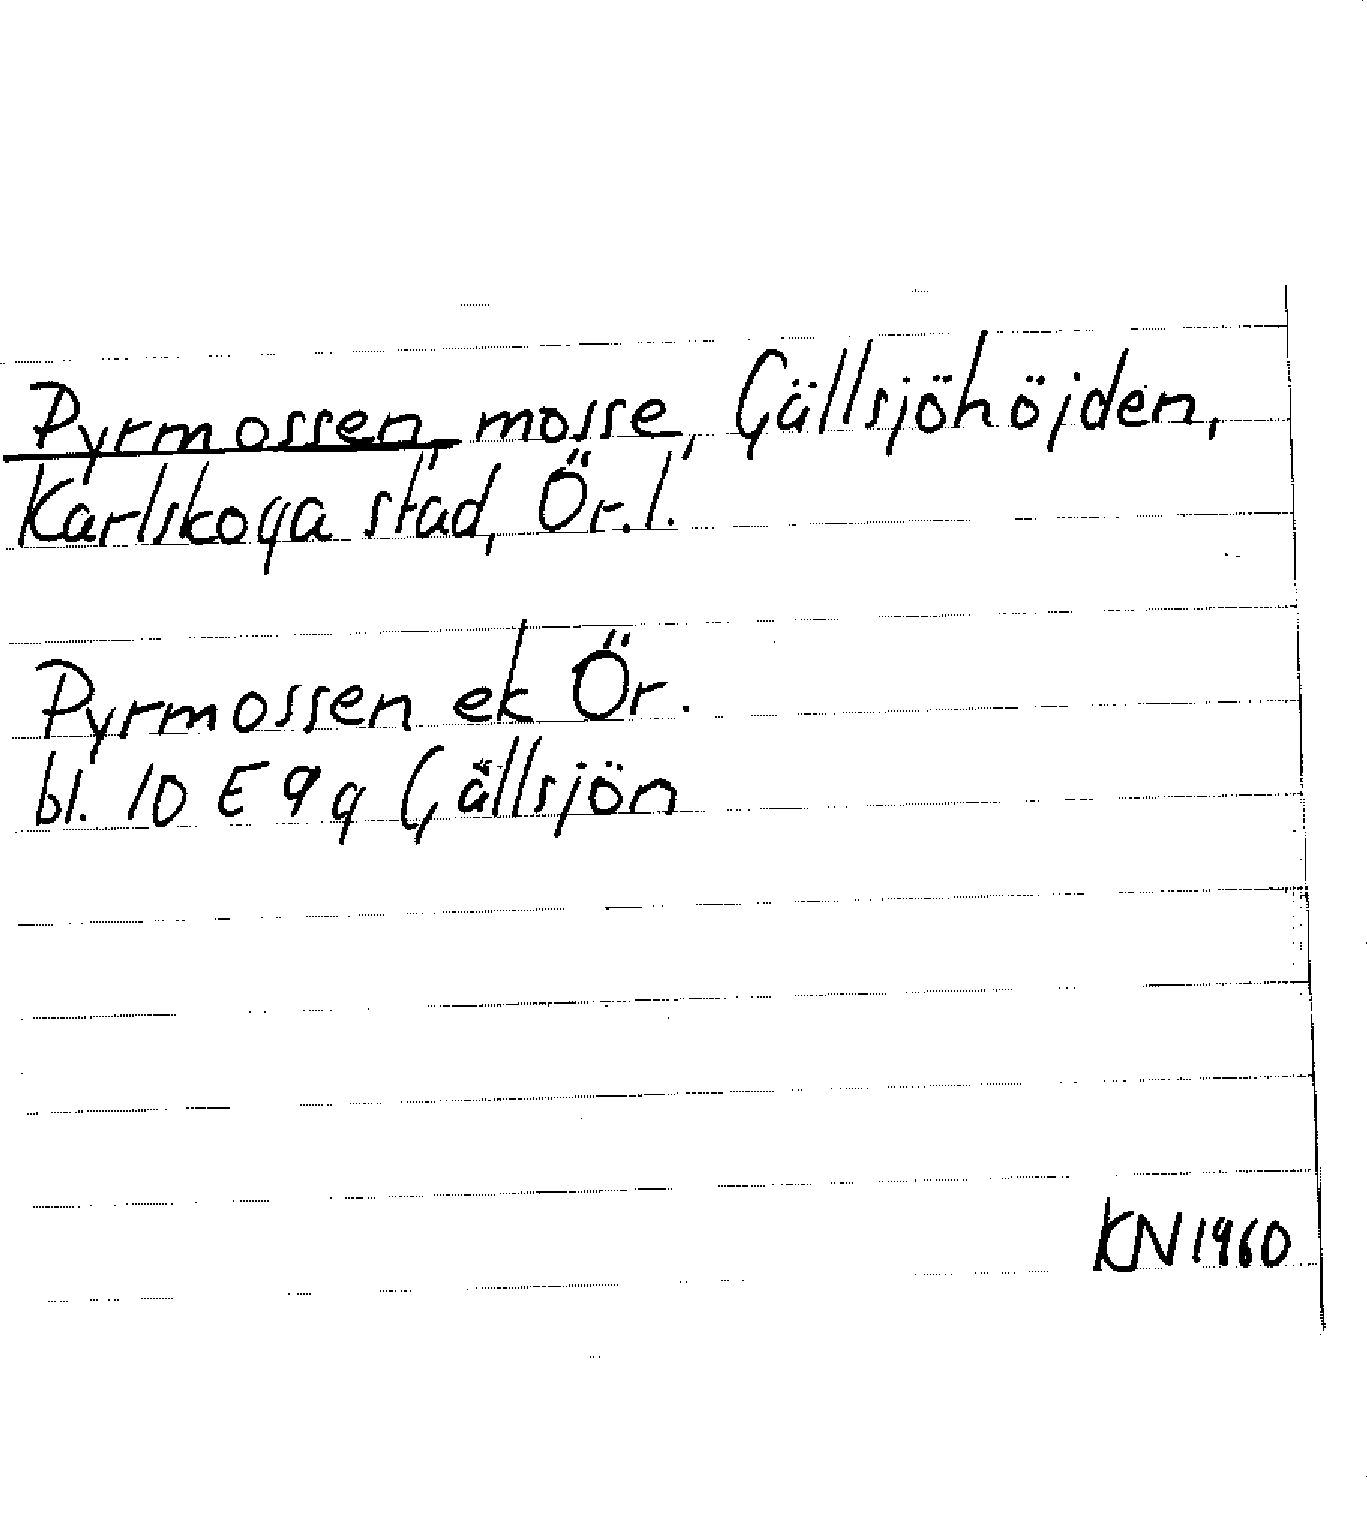 Pyrmossen, mosse, Gällsjöhöjden,
Karlskoga stad, Ör. l.
Pyrmossen ek Ör.
bl. 10 E 9 g Gällsjön
KN 1960